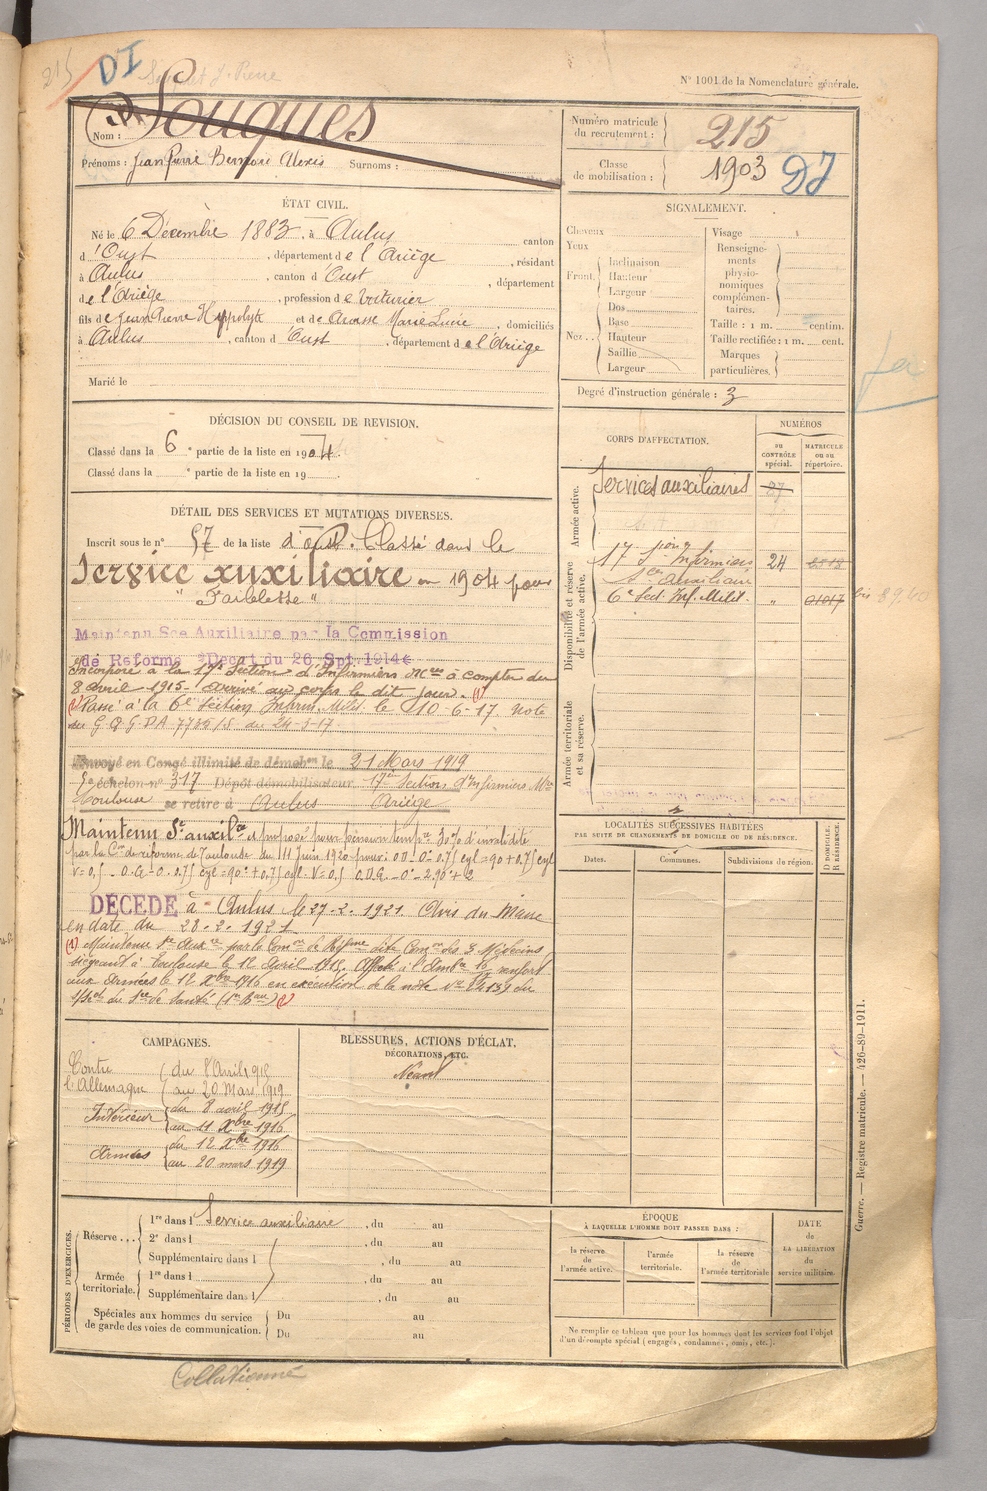 215
DI
N° 1001 de la Nomenclature générale.
Nom : Souques
Prénoms : Jean Pierre Bernard Alexis Surnoms :
Numéro matricule du recrutement : 215
Classe de mobilisation : 1903 DI
ÉTAT CIVIL.
Né le 6 Décembre 1883, à Aulus canton
d'Oust, département de l'Ariège, résidant
à Aulus, canton d'Oust, département
de l'Ariège, profession de Voiturier
fils de Jean Pierre Hyppolyte et de Marie Lucie, domiciliés
à Aulus, canton d'Oust, département de l'Ariège
Marié le
SIGNALEMENT.
Cheveux
Yeux
Front
Inclinaison
Hauteur
Largeur
Nez
Dos
Base
Hauteur
Saillie
Largeur
Visage
Renseignements physionomiques complémentaires.
Taille : 1 m. centim.
Taille rectifiée : 1 m. cent.
Marques particulières.
Degré d'instruction générale : 3
DÉCISION DU CONSEIL DE REVISION.
Classé dans la 6e partie de la liste en 1904.
Classé dans la e partie de la liste en 19
DÉTAIL DES SERVICES ET MUTATIONS DIVERSES.
Inscrit sous le n° 57 de la liste d'Oust. Classé dans le
Service auxiliaire en 1904 pour
"Faiblesse"
Maintenu Sce Auxiliaire par la Commission
de Réforme Décret du 26 Spt 1914
Incorporé à la 17e Section d'Infirmiers Mres à compter du
8 avril 1915 - arrivé au corps le dit jour. (1)
Passé à la 6e Section Infirm. Milit. le 10-6-17. Note
du G.Q.G.DA
Envoyé en Congé illimité de démobon le 21 Mars 1919
échelon n° 317 Dépôt démobilisateur 17me Section d'Infirmiers Mres
Toulouse se retire à Aulus Ariège
Maintenu Sce auxilre et proposé pour pension tempre 30% d'invalidité
par la Con de réforme de Toulouse du 11 Juin 1920 pour :
DÉCÉDÉ à Aulus le 27-2-1921. Avis du Maire
en date du 28-2-1921
(1) Maintenu Sce Auxre par la Comon de Réforme dite Comon des 3 Médecins
siégeant à Toulouse le 12 Avril 1915.
aux Armées le 12 Xbre 1916 en exécution de la note
du Sce de Santé
CORPS D'AFFECTATION.
NUMÉROS
AU CONTRÔLE spécial.
MATRICULE ou au répertoire.
Armée active.
Services auxiliaires 27
Disponibilité et réserve de l'armée active.
17 Son Infirmiers 24
Sce auxiliaire
6e Sect. Inf. Milit. " 01017
Armée territoriale et sa réserve.
LOCALITÉS SUCCESSIVES HABITÉES
PAR SUITE DE CHANGEMENTS DE DOMICILE OU DE RÉSIDENCE.
Dates.
Communes.
Subdivisions de région.
D DOMICILE. R RÉSIDENCE.
CAMPAGNES.
Contre l'Allemagne du 8 Avril 1915
au 20 Mars 1919
Intérieur du 8 avril 1915
au 11 Xbre 1916
Armées du 12 Xbre 1916
au 20 mars 1919
BLESSURES, ACTIONS D'ÉCLAT,
DÉCORATIONS, ETC.
Néant
PÉRIODES D'EXERCICES.
Réserve...
1re dans l Service auxiliaire, du au
2e dans l , du au
Supplémentaire dans l , du au
Armée territoriale.
1re dans l , du au
Supplémentaire dans l , du au
Spéciales aux hommes du service de garde des voies de communication.
Du au
Du au
ÉPOQUE
À LAQUELLE L'HOMME DOIT PASSER DANS :
la réserve de l'armée active.
l'armée territoriale.
la réserve de l'armée territoriale
DATE de LA LIBÉRATION du service militaire.
Ne remplir ce tableau que pour les hommes dont les services font l'objet
d'un décompte spécial (engagés, condamnés, omis, etc.).
Guerre. — Registre matricule. — 426-89-1911.
Collationné